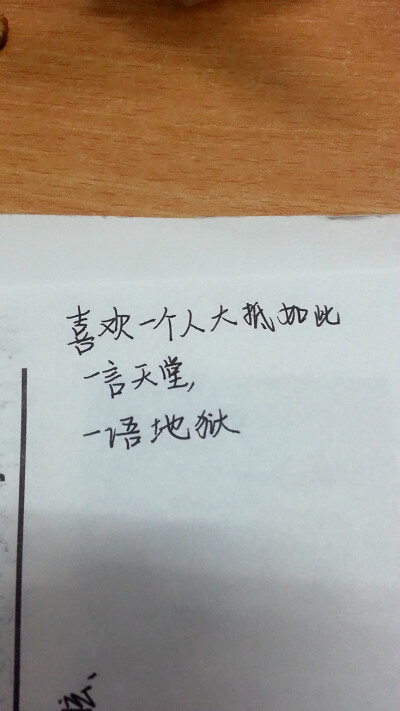 喜欢一个人大抵如此
一言天堂,
一语地狱